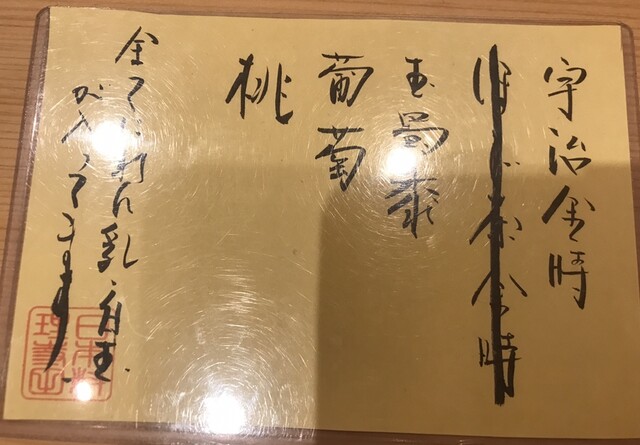 宇治金時
ほうじ茶金時
玉蜀黍
葡萄
桃
全てに打ち乳白玉
が入ってます